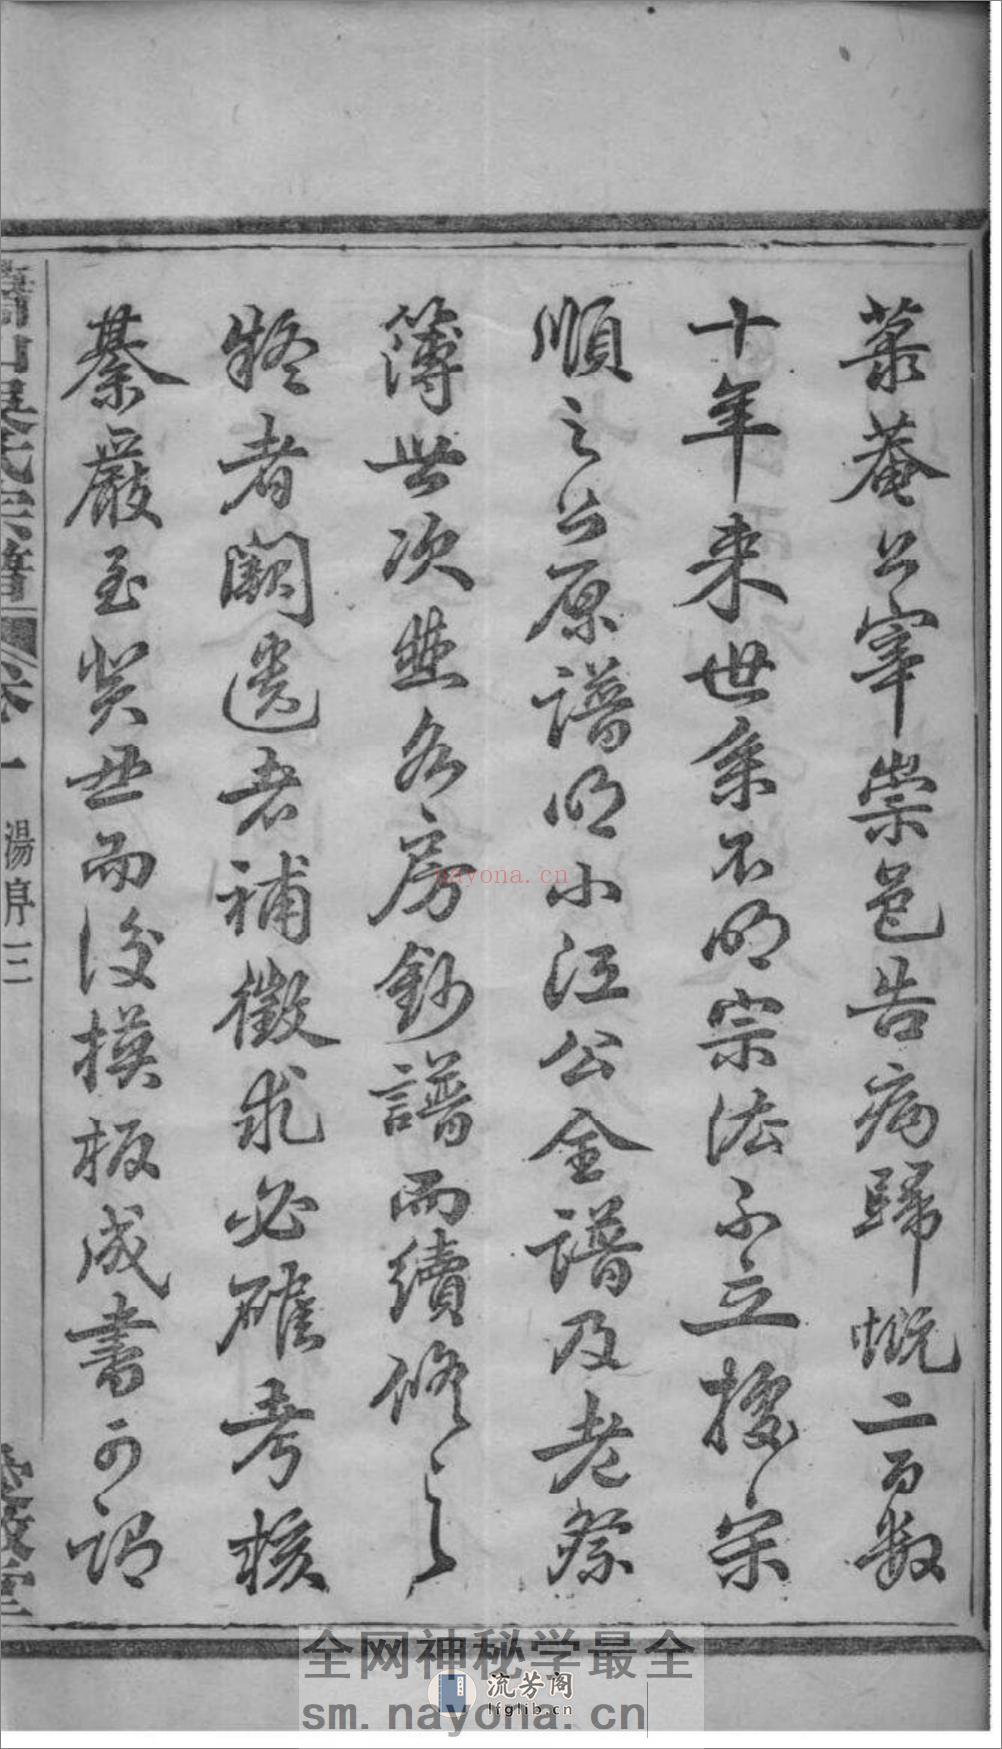 菉菴公宰崇邑告病歸慨二百数
十年来世系不明宗法不立搜宋
順之公原譜明小江公全譜及老祭
簿世次與各房鈔譜而續修之
疑者闕遺者補徵求必確考核
綦嚴至癸丑而後摸板成書可謂
吳氏宗譜 卷一 湯序 三
nayona.cn
全网神秘学最全
流芳阁
lfglib.cn
sm.nayona.cn